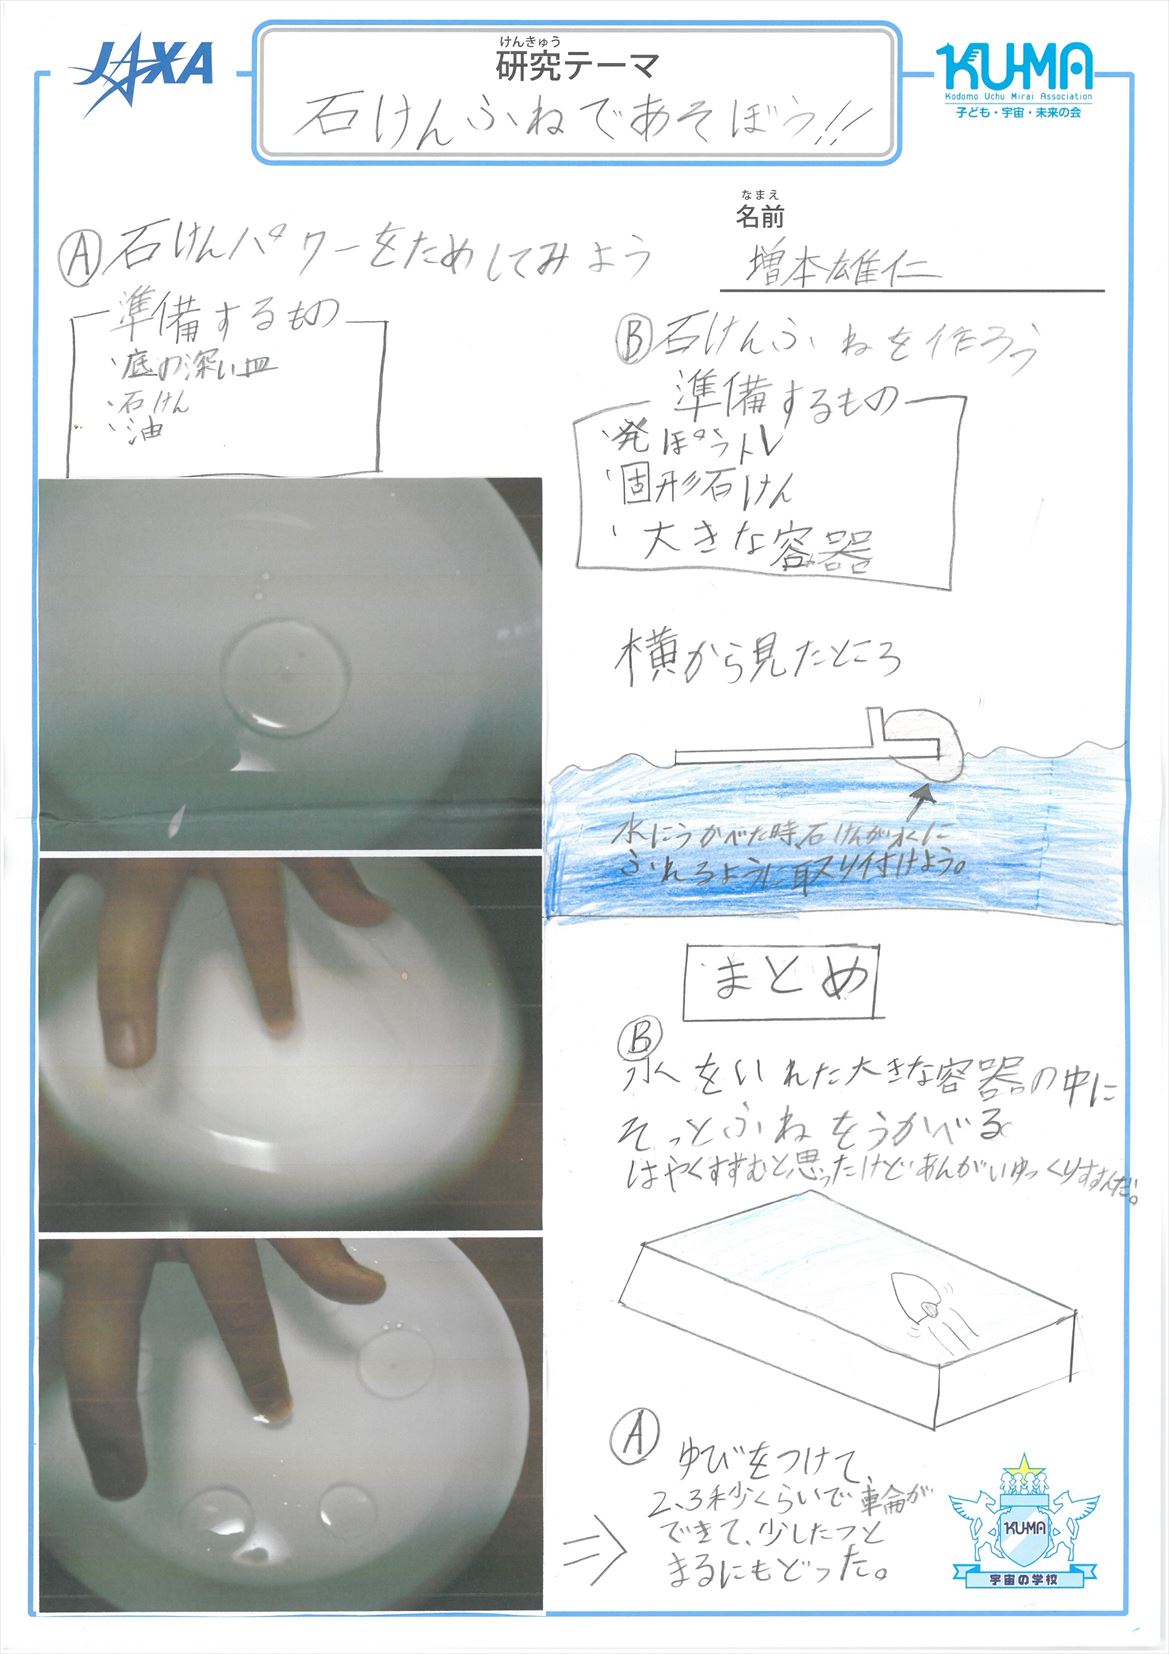 JAXA
けんきゅう
研究テーマ
石けんふねであそぼう!!
KU-MA
Kodomo Uchu Mirai Association
子ども・宇宙・未来の会
なまえ
名前
増本雄仁
Ⓐ石けんパワーをためしてみよう
準備するもの
・底の深い皿
・石けん
・油
Ⓑ石けんふねを作ろう
準備するもの
・発ぽうトレ
・固形石けん
・大きな容器
横から見たところ
水にうかべた時、石けんが水に
ふれるように取り付けよう。
まとめ
Ⓑ
水をいれた大きな容器の中に
そっとふねをうかべる
はやくすすむと思ったけどあんがいゆっくりすすんだ。
Ⓐ
ゆびをつけて、
2、3秒くらいで車輪が
できて、少したつと
まるにもどった。
KU-MA
宇宙の学校